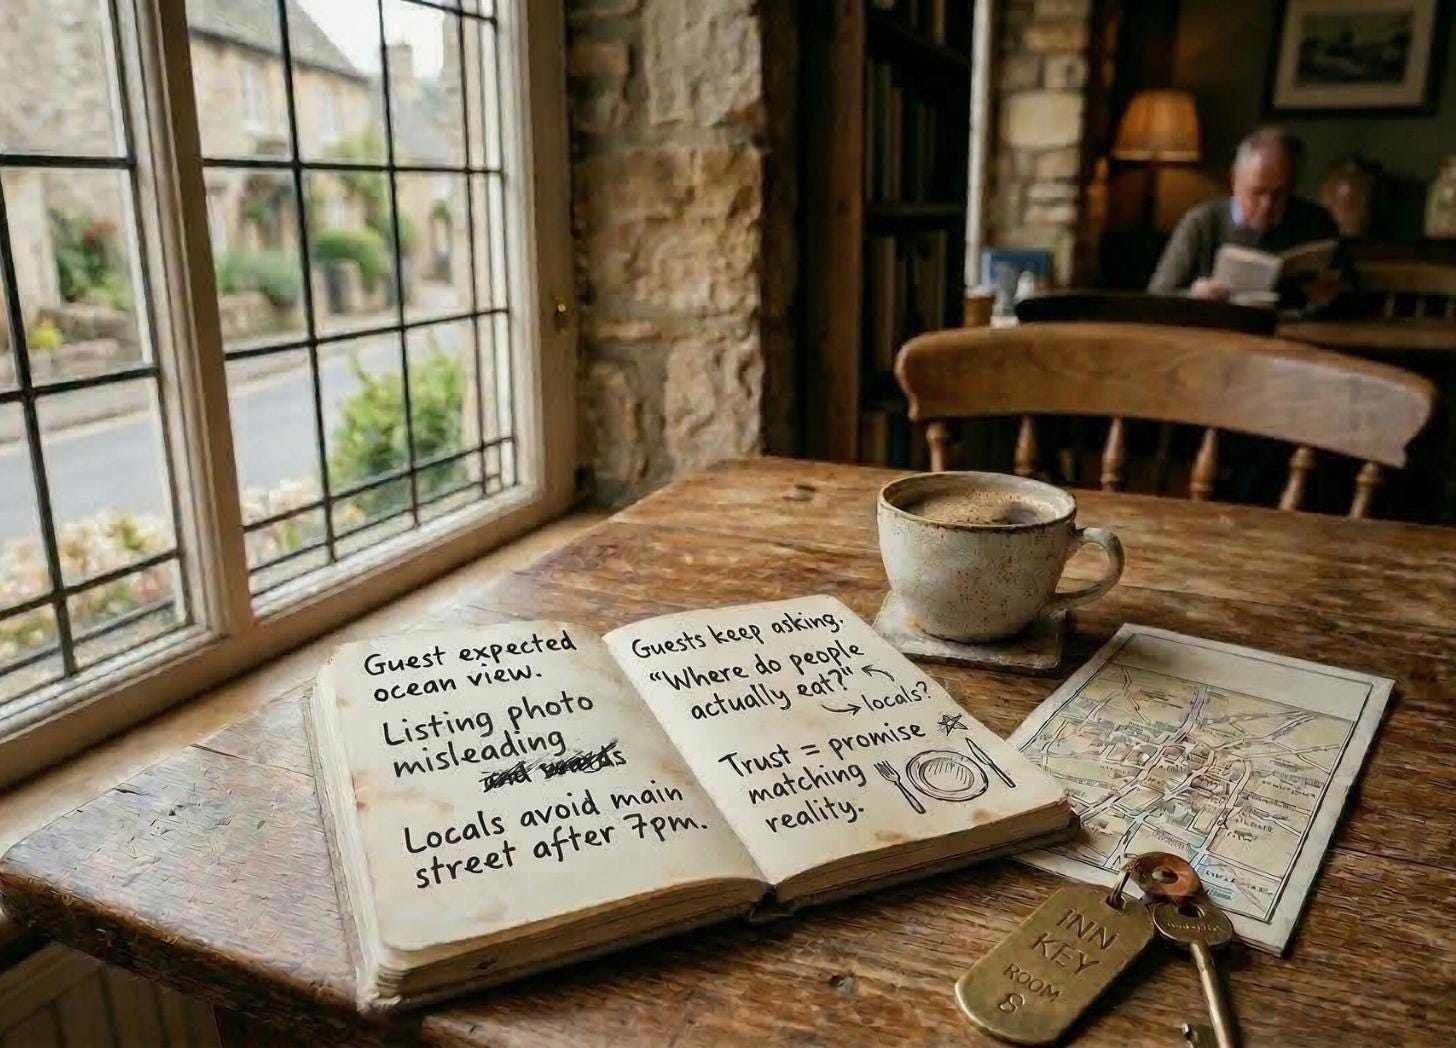 Guest expected
ocean view.
Listing photo
misleading
Locals avoid main
street after 7pm.
Guests keep asking.
"Where do people
actually eat?"
locals?
Trust = promise
matching
reality.
INN
KEY
ROOM
8